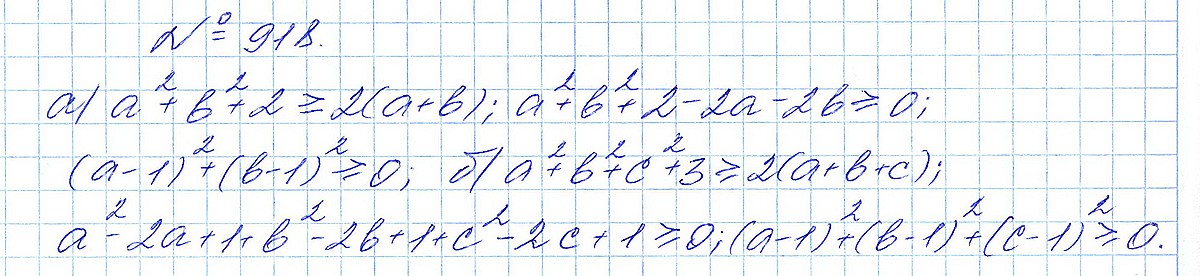 № 918.
а) a² + b² + 2 ≥ 2(a+b); a² + b² + 2 - 2a - 2b ≥ 0;
(a-1)² + (b-1)² ≥ 0; б) a² + b² + c² + 3 ≥ 2(a+b+c);
a² - 2a + 1 + b² - 2b + 1 + c² - 2c + 1 ≥ 0; (a-1)² + (b-1)² + (c-1)² ≥ 0.